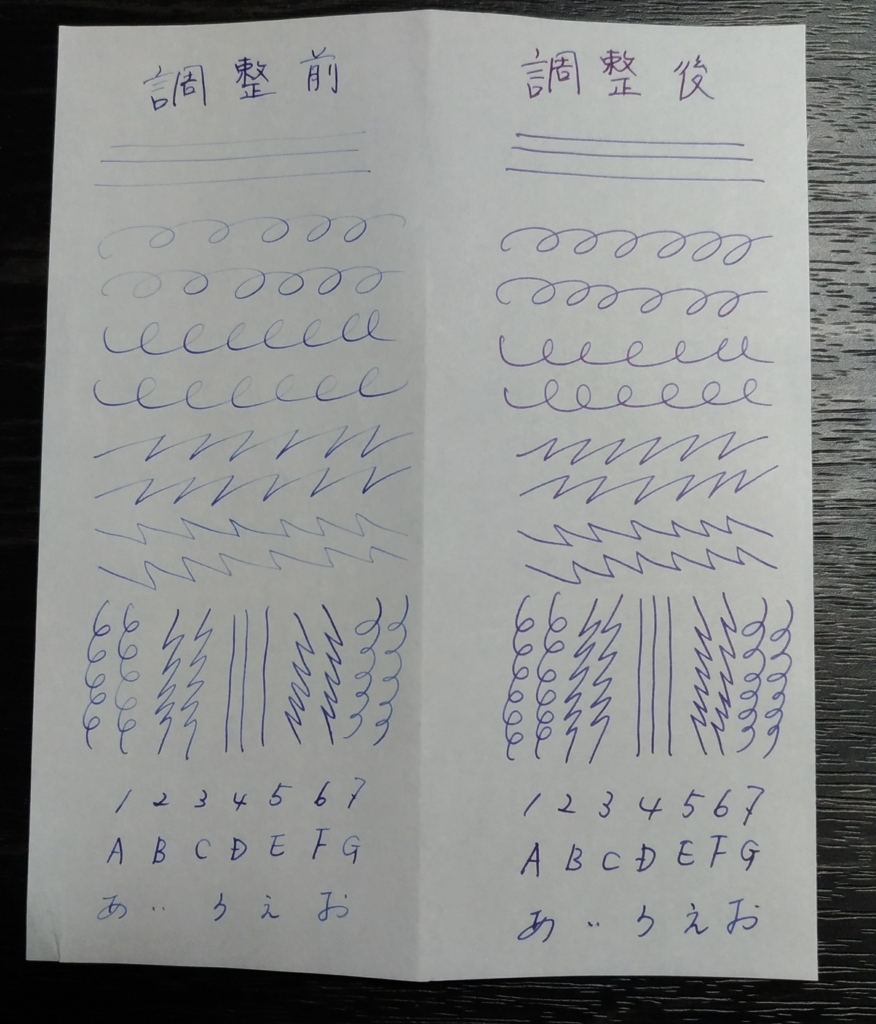 調整前
調整後
1 2 3 4 5 6 7
A B C D E F G
あ い う え お
1 2 3 4 5 6 7
A B C D E F G
あ い う え お